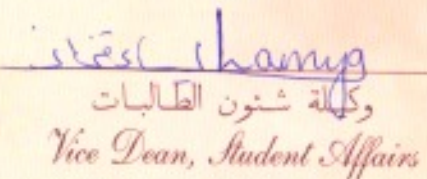 وكيلة شئون الطالبات
Vice Dean, Student Affairs